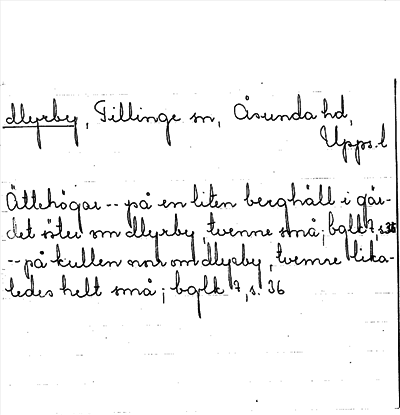 Myrby, Tillinge sn, Åsunda hd,
Upps. l
Ättehögar -- på en liten berghäll i går-
det öster om Myrby, tvenne små; bglk 7, s. 35
-- på kullen norr om Myrby, tvenne lika-
ledes helt små; bglk 7, s. 36